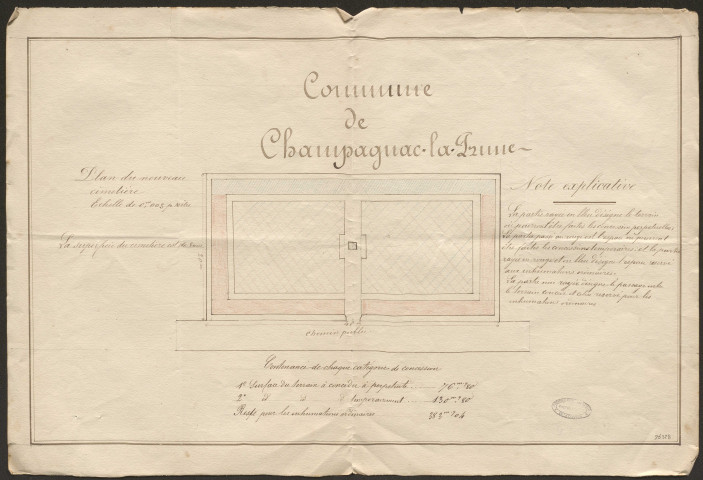 Commune
de
Champagnac-la-Prune
Plan du nouveau
cimetière
Echelle de 0m005 p. mètre
La superficie du cimetière est de
Note explicative
La partie rayée en bleu désigne le terrain
où pourront être faites les concessions perpétuelles
La partie rayée en rouge est l'espace où pourront
être faites les concessions temporaires, et la partie
rayée en rouge et en bleu désigne l'espace réservé
aux inhumations ordinaires.
La partie non rayée désigne le passage
le terrain concédé et celui réservé pour les
inhumations ordinaires
chemin public
Contenance de chaque catégorie de concession
1° Surface du terrain à concéder à perpétuité ...... 70mq 80
2° d d d d temporairement ... 130mq 80
Reste pour les inhumations ordinaires 385mq 04